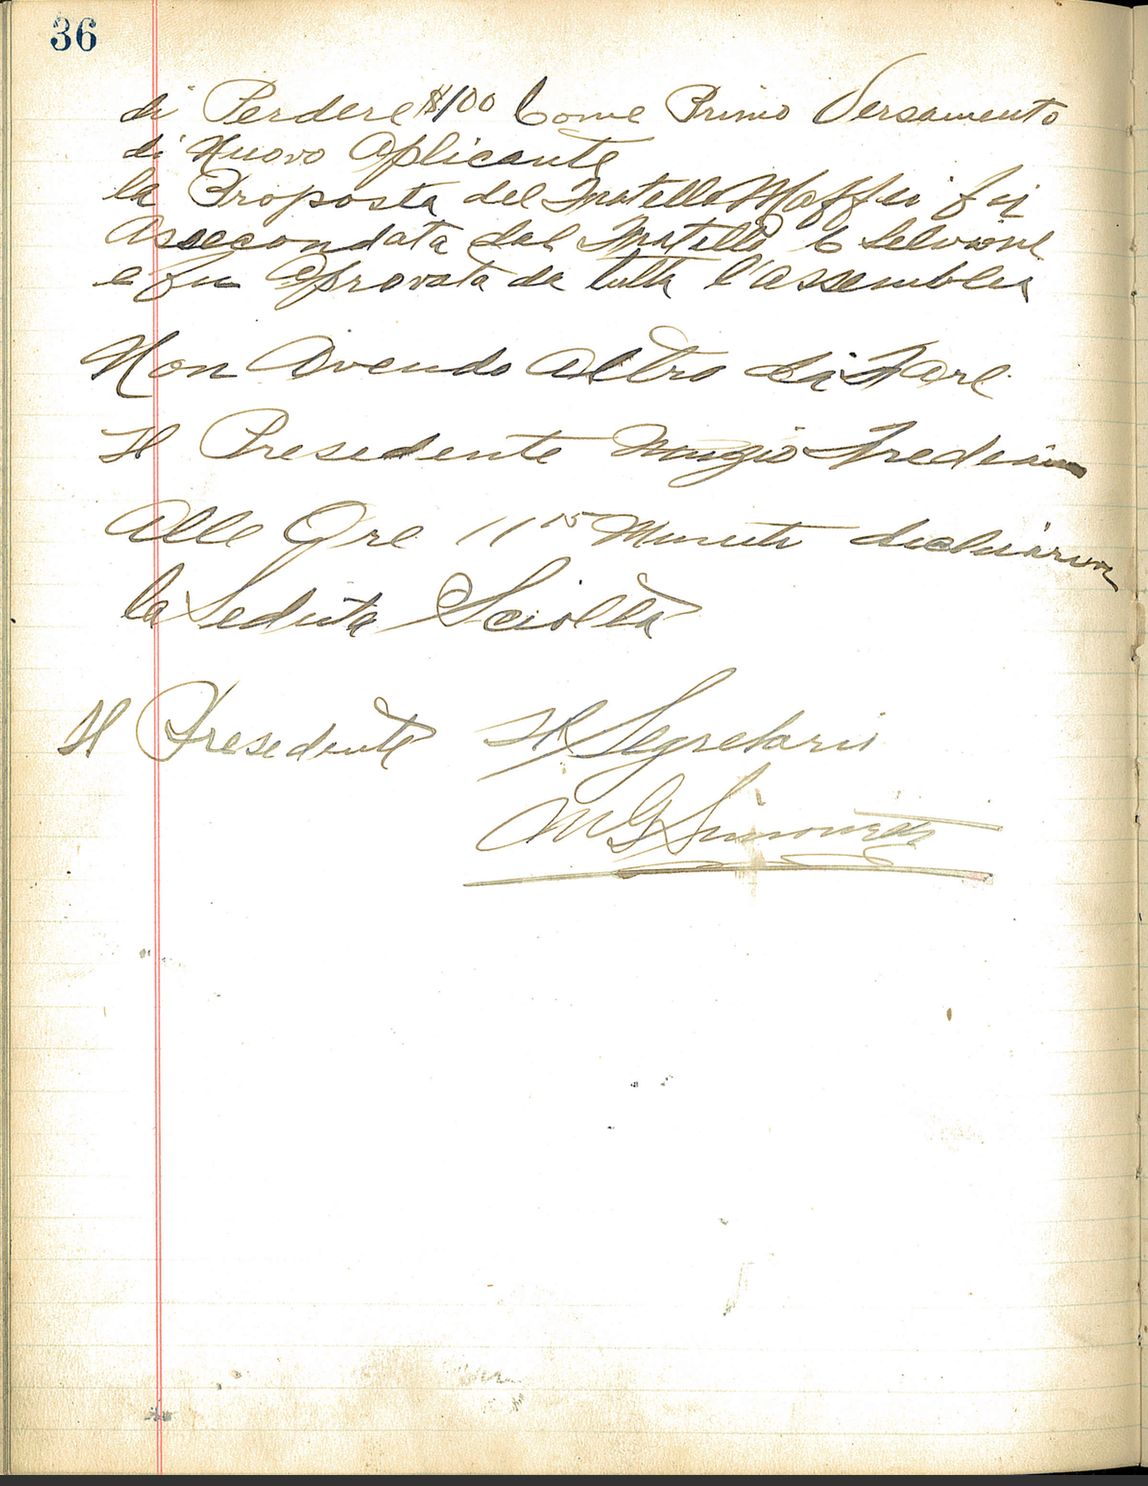 36
di Perdere $100 Come Primo Versamento
di Nuovo Aplicante
la Proposta del Fratello Maffei fu
Assecondata dal Fratello C Selvione
e fu Aprovata da tutta l'assemblea
Non Avendo Altro di Fare
Il Presedente Nunzio
Alle Ore 11 15 Minuti dichiarava
la Seduta Sciolta
Il Presedente Il Segretario
M G Simonetti